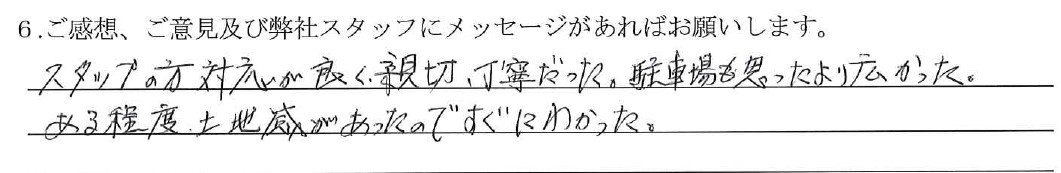 6.ご感想、ご意見及び弊社スタッフにメッセージがあればお願いします。
スタッフの方対応が良く、親切、丁寧だった。駐車場も思ったより広かった。
ある程度土地感があったのですぐにわかった。